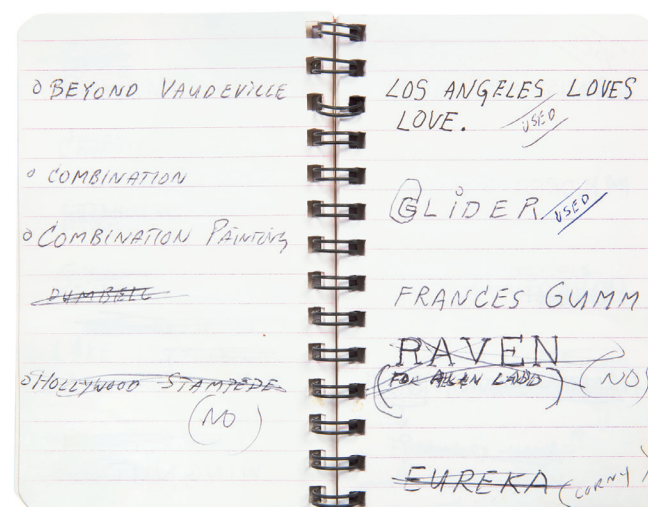 o BEYOND VAUDEVILLE
o COMBINATION
o COMBINATION PAINTING
DUMBELL
o HOLLYWOOD STAMPEDE
(NO)
LOS ANGELES LOVES
LOVE. USED
GLIDER USED
FRANCES GUMM
RAVEN
(FOR ALAN LADD) (NO)
EUREKA (CORNY)